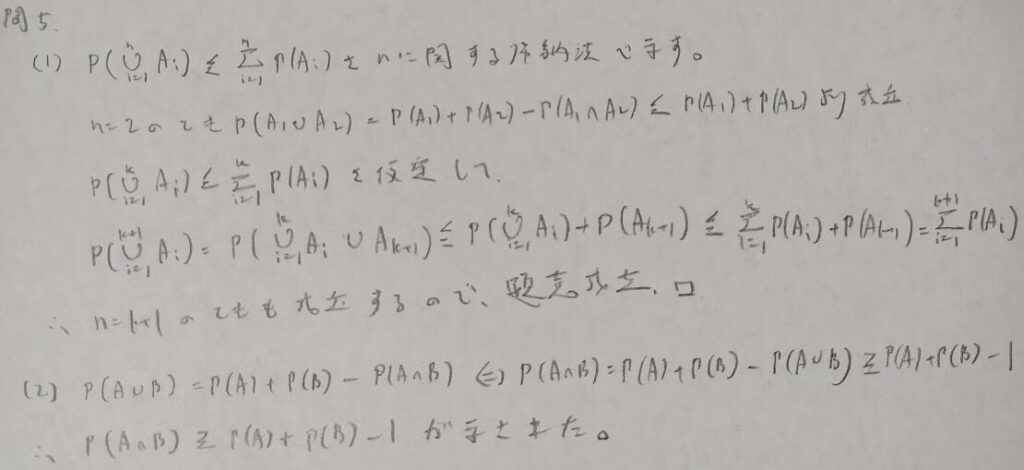 問5.
(1) P(⋃_{i=1}^{n} Ai) ≦ Σ_{i=1}^{n} P(Ai) を n に関する帰納法で示す。
n=2のとき P(A1∪A2) = P(A1)+P(A2)-P(A1∩A2) ≦ P(A1)+P(A2) より成立
P(⋃_{i=1}^{k} Ai) ≦ Σ_{i=1}^{k} P(Ai) を仮定して、
P(⋃_{i=1}^{k+1} Ai) = P(⋃_{i=1}^{k} Ai ∪ Ak+1) ≦ P(⋃_{i=1}^{k} Ai) + P(Ak+1) ≦ Σ_{i=1}^{k} P(Ai) + P(Ak+1) = Σ_{i=1}^{k+1} P(Ai)
∴ n=k+1 のときも成立するので、題意成立. □
(2) P(A∪B) = P(A) + P(B) - P(A∩B) ⇔ P(A∩B) = P(A) + P(B) - P(A∪B) ≧ P(A)+P(B)-1
∴ P(A∩B) ≧ P(A) + P(B) -1 が示せました。